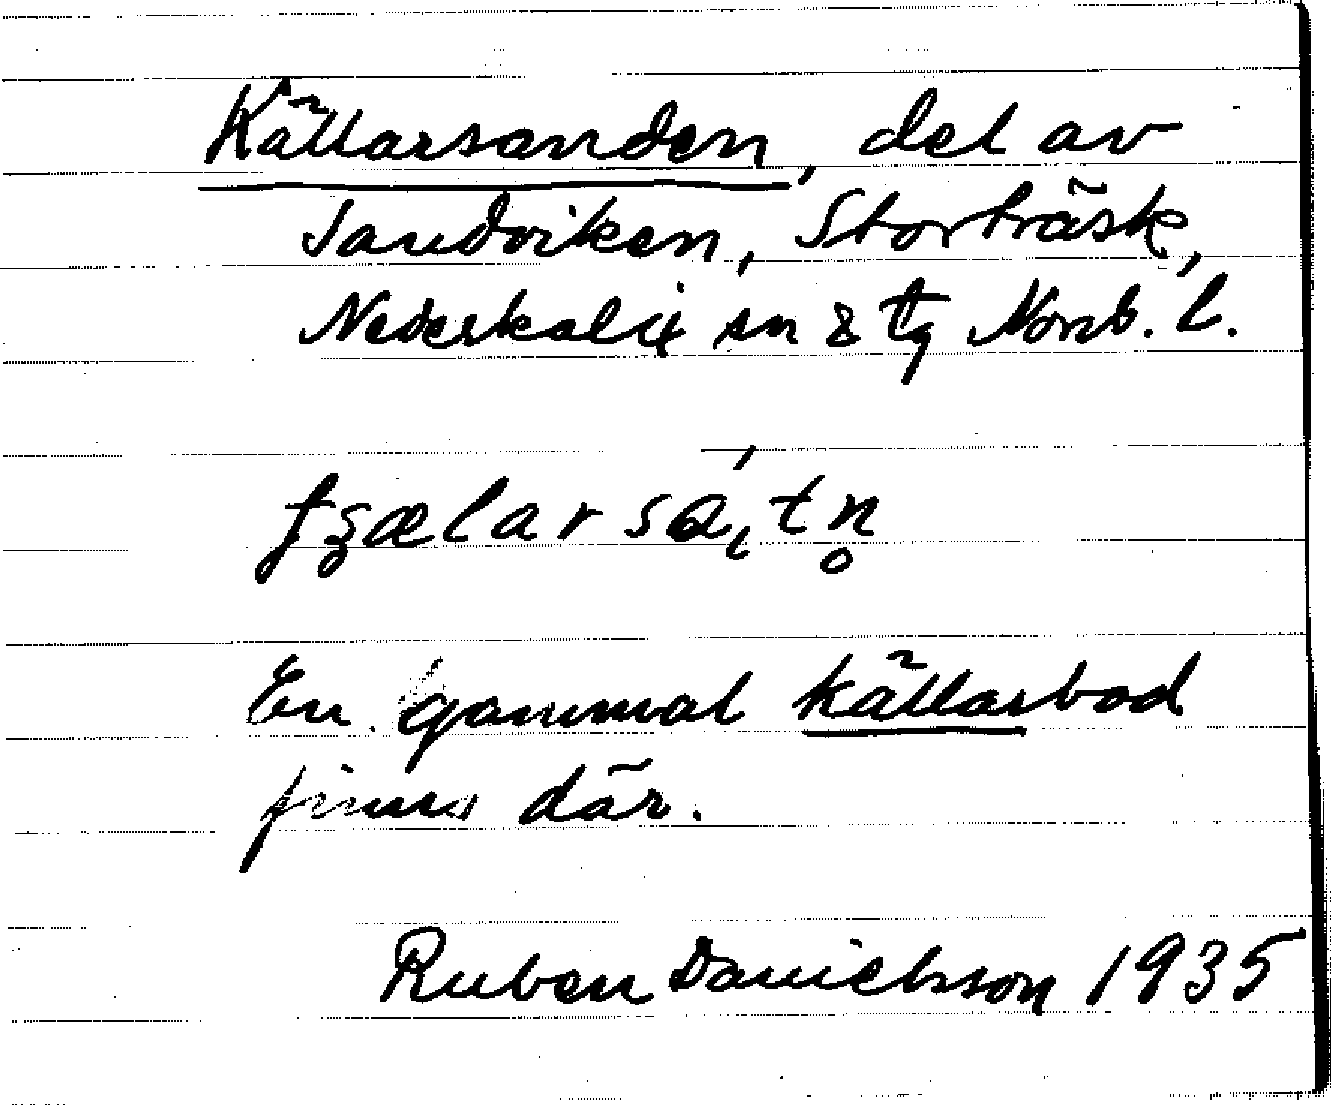 Källarsanden, del av
Sandviken, Storträsk,
Nederkalix sn & tg Norrb. l.
En gammal källarbod
finns där.
Ruben Danielsson 1935